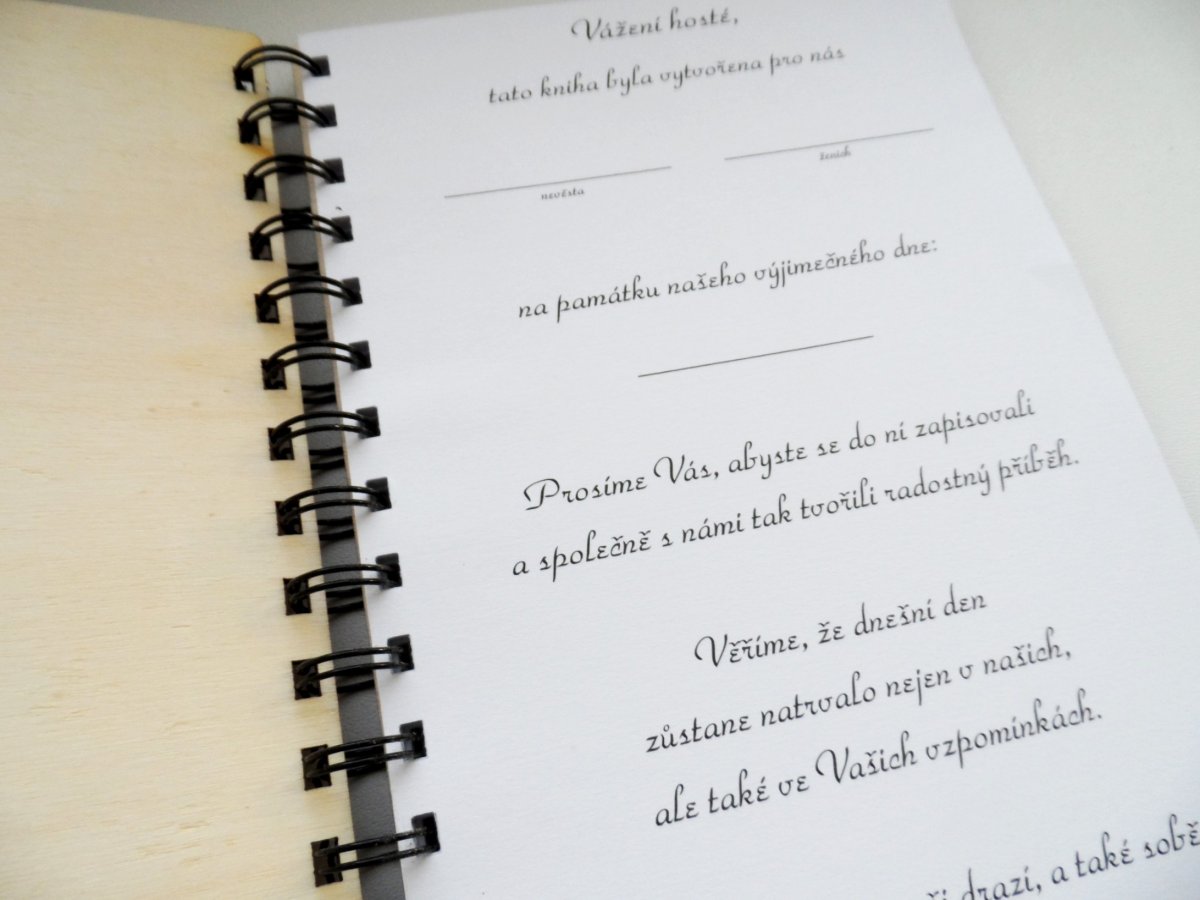 Vážení hosté,
tato kniha byla vytvořena pro nás
nevěsta
ženich
na památku našeho výjimečného dne:
Prosíme Vás, abyste se do ní zapisovali
a společně s námi tak tvořili radostný příběh.
Věříme, že dnešní den
zůstane natrvalo nejen v našich,
ale také ve Vašich vzpomínkách.
drazí, a také sobě